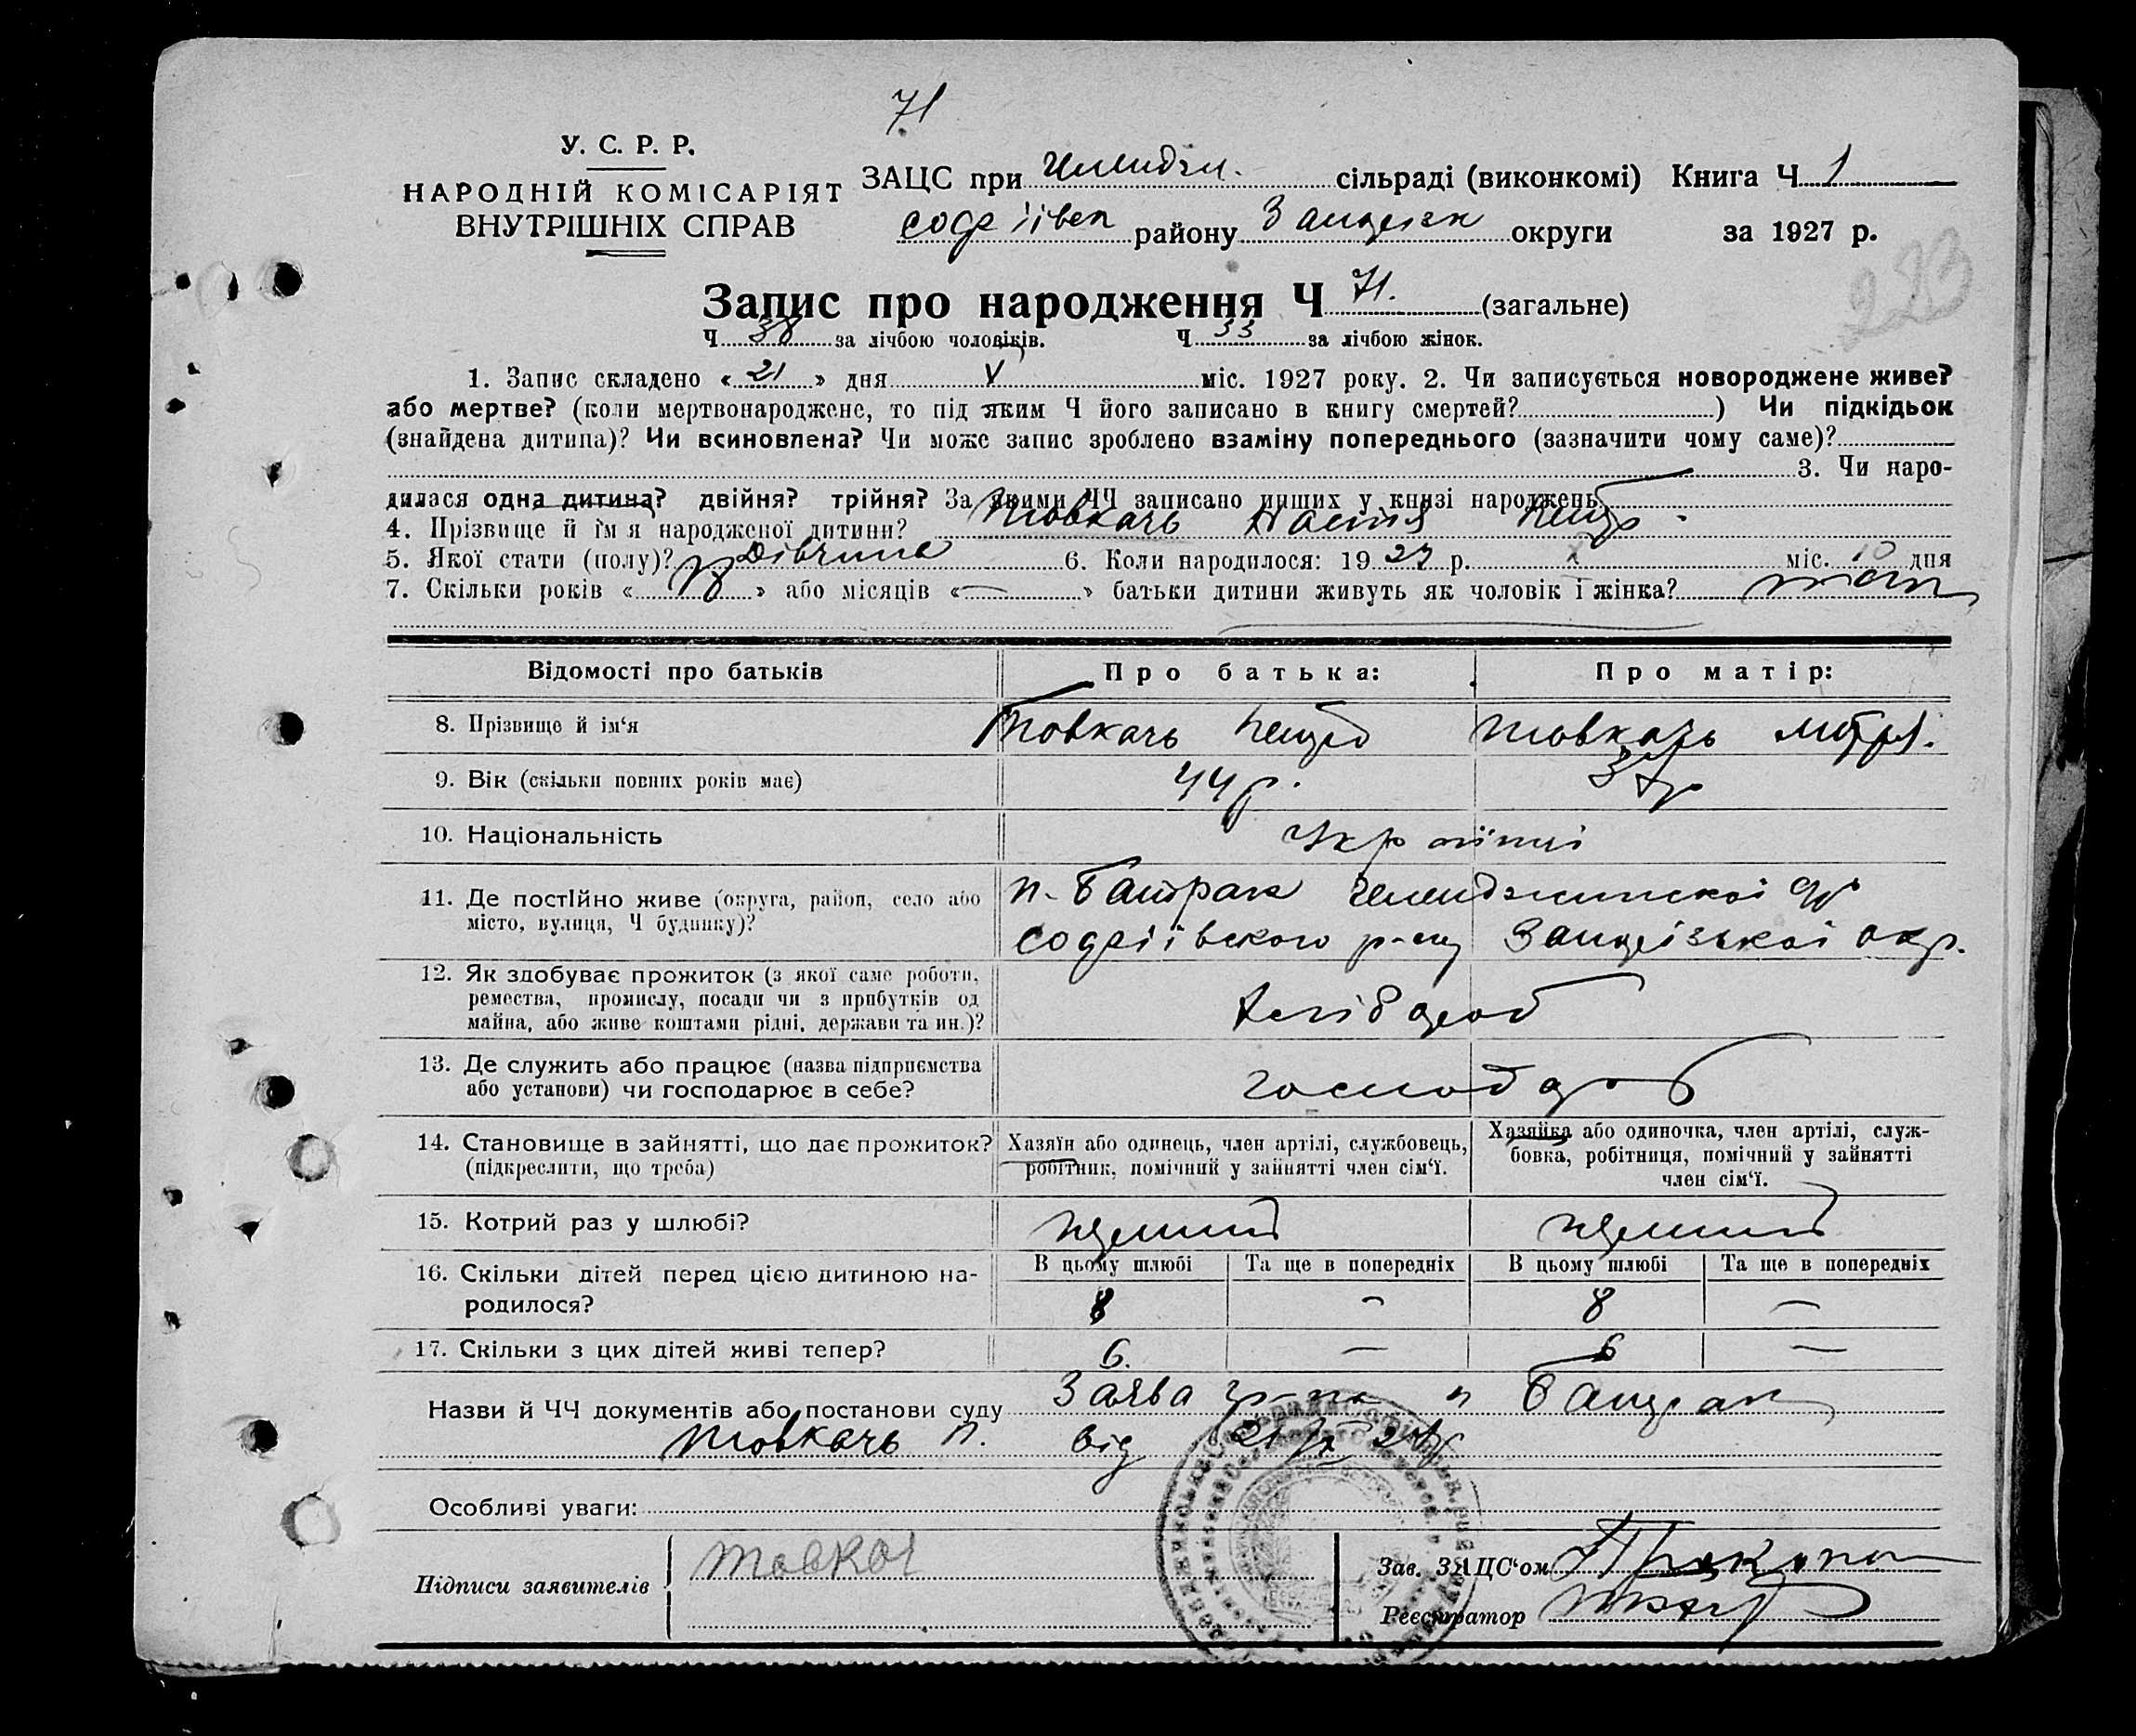 71
У. С. Р. Р.
НАРОДНІЙ КОМІСАРІЯТ
ВНУТРІШНІХ СПРАВ
ЗАЦС при сільраді (виконкомі) Книга Ч 1
району округи за 1927 р.
223
Запис про народження Ч 71. (загальне)
Ч 38 за лічбою чоловіків. Ч 33 за лічбою жінок.
1. Запис складено « 21 » дня міс. 1927 року. 2. Чи записується новороджене живе?
або мертве? (коли мертвонароджене, то під яким Ч його записано в книгу смертей? ) Чи підкідьок
(знайдена дитина)? Чи всиновлена? Чи може запис зроблено взаміну попереднього (зазначити чому саме)?
3. Чи наро-
дилася одна дитина? двійня? трійня? За якими ЧЧ записано инших у книзі народжень
4. Прізвище й ім'я народженої дитини? Товкачь Настя
5. Якої стати (полу)? Дівчина 6. Коли народилося: 19 27 р. X міс. 10 дня
7. Скільки років « » або місяців « — » батьки дитини живуть як чоловік і жінка?
Відомості про батьків Про батька: Про матір:
8. Прізвище й ім'я Товкачь Петро Товкачь
9. Вік (скільки повних років має) 44 р. 37 р
10. Національність Українці
11. Де постійно живе (округа, район, село або
місто, вулиця, Ч будинку)?
п. Батрак
Софіївского р-ну окр.
12. Як здобуває прожиток (з якої саме роботи,
ремества, промислу, посади чи з прибутків од
майна, або живе коштами рідні, держави та ин.)?
Хлібороб
13. Де служить або працює (назва підприємства
або установи) чи господарює в себе?
14. Становище в зайнятті, що дає прожиток?
(підкреслити, що треба)
Хазяїн або одинець, член артілі, службовець,
робітник, помічний у зайнятті член сім'ї.
Хазяйка або одиночка, член артілі, служ-
бовка, робітниця, помічний у зайнятті
член сім'ї.
15. Котрий раз у шлюбі? перший перший
16. Скільки дітей перед цією дитиною на-
родилося?
В цьому шлюбі Та ще в попередніх В цьому шлюбі Та ще в попередніх
8 — 8 —
17. Скільки з цих дітей живі тепер? 6. — 6 —
Назви й ЧЧ документів або постанови суду Заява гр-на п Батрак
Товкачь П. від 21
Особливі уваги:
Підписи заявителів Товкач
Зав. ЗАЦС'ом
Реєстратор